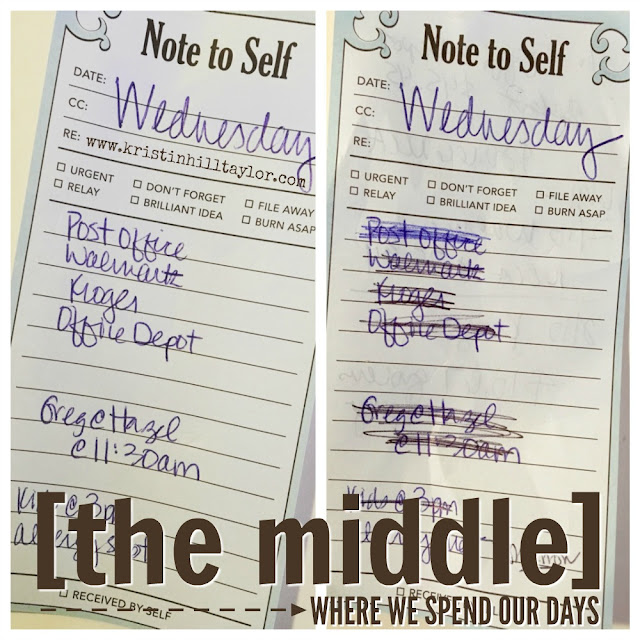 Note to Self
DATE:
CC: Wednesday
RE: www.kristinhilltaylor.com
☐ URGENT ☐ DON'T FORGET ☐ FILE AWAY
☐ RELAY ☐ BRILLIANT IDEA ☐ BURN ASAP
Post Office
Walmart
Kroger
Office Depot
Greg @ Hazel
@ 11:30am
Kids @ 3pm
allergy shot
☐ RECEIVED BY SELF
Note to Self
DATE:
CC: Wednesday
RE:
☐ URGENT ☐ DON'T FORGET ☐ FILE AWAY
☐ RELAY ☐ BRILLIANT IDEA ☐ BURN ASAP
Post Office
Walmart
Kroger
Office Depot
Greg @ Hazel
@ 11:30am
Kids @ 3pm
[the middle]
WHERE WE SPEND OUR DAYS